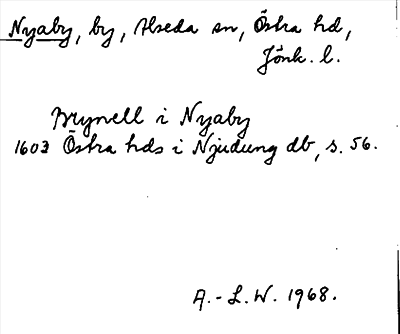 Nyaby, by, Alseda sn, Östra hd,
Jönk. l.
Brynell i Nyaby
1603 Östra hds i Njudung db, s. 56.
A.-L.W. 1968.